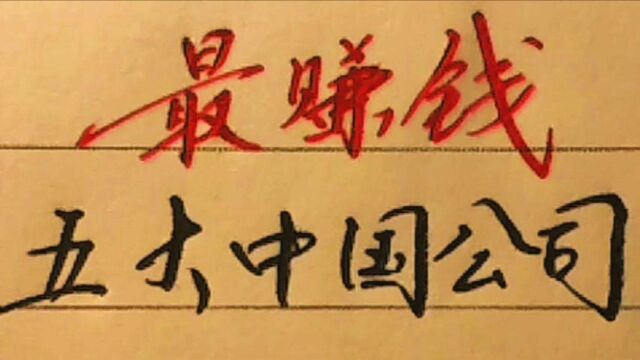 最赚钱
五大中国公司